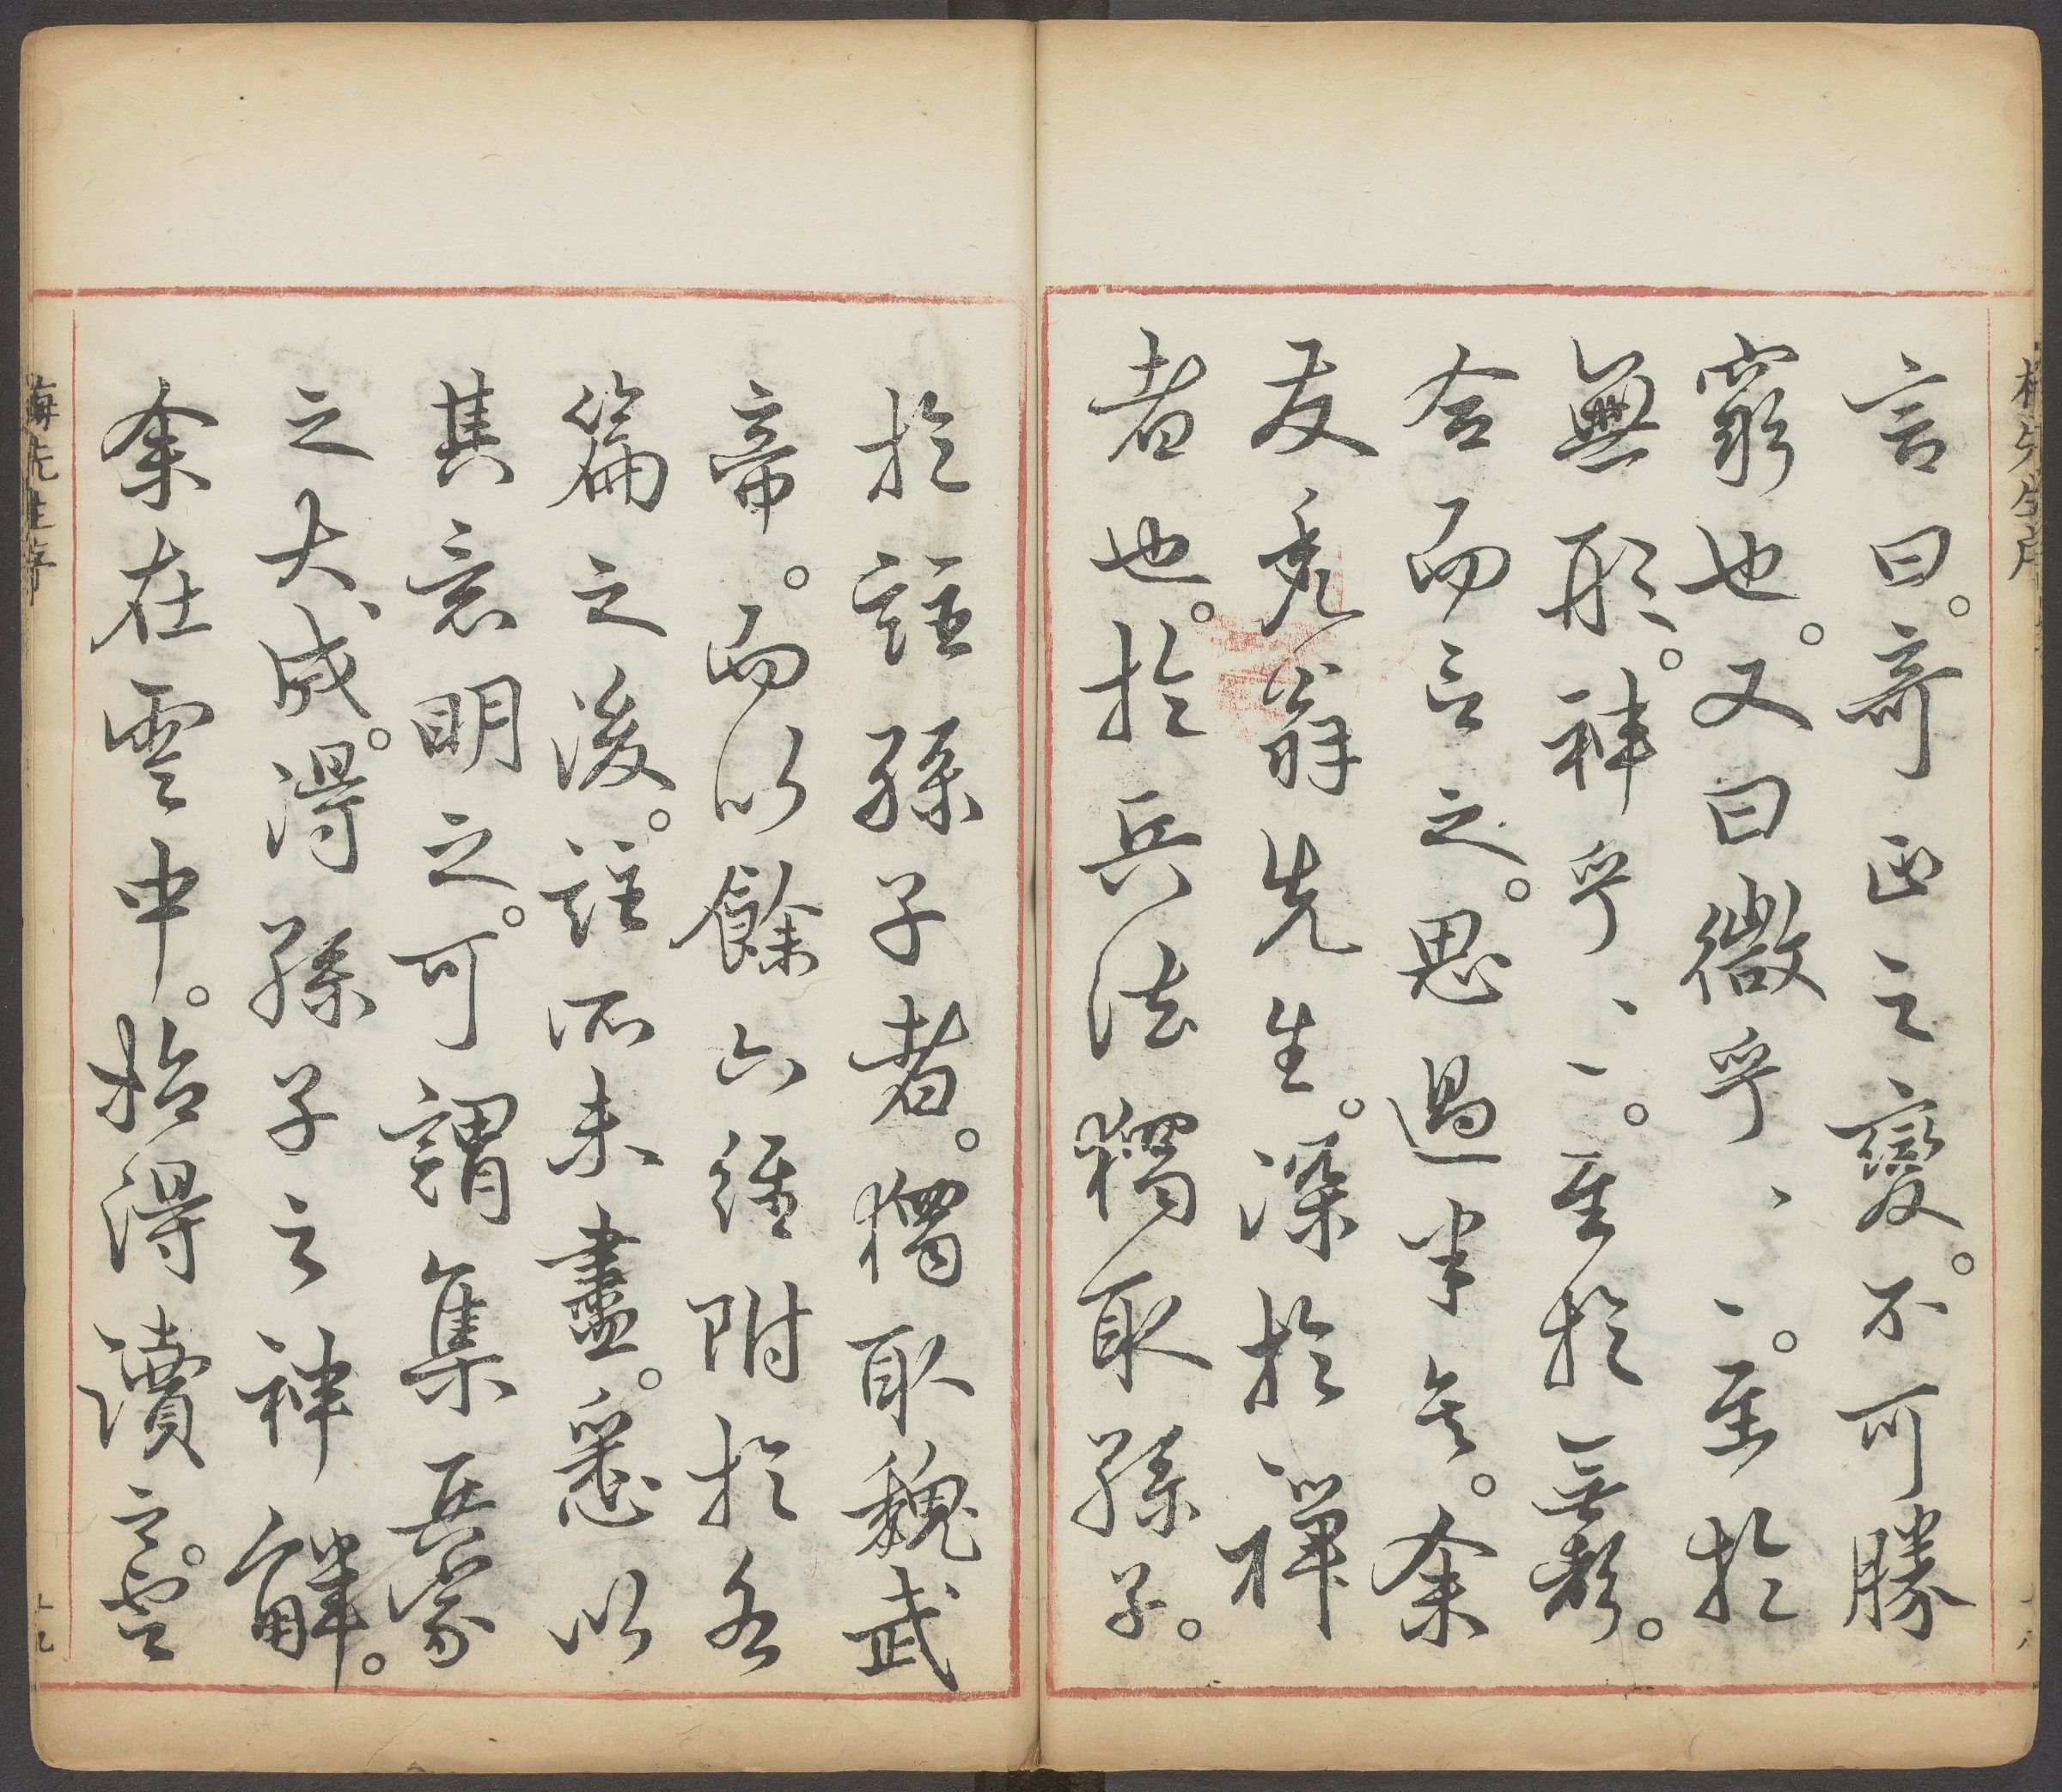 梅先生序
言曰。奇正之變。不可勝
窮也。又曰微乎、、。至於
無形。神乎、、。至於無聲。
合而言之。思過半矣。余
友禿翁先生。深於禪
者也。於兵法獨取孫子。
於註孫子者。獨取魏武
帝。而以餘六經附於各
篇之後。註所未盡。悉以
其意明之。可謂集兵家
之大成。得孫子之神解。
余在雲中。始得讀之。雲
梅先生序
十九